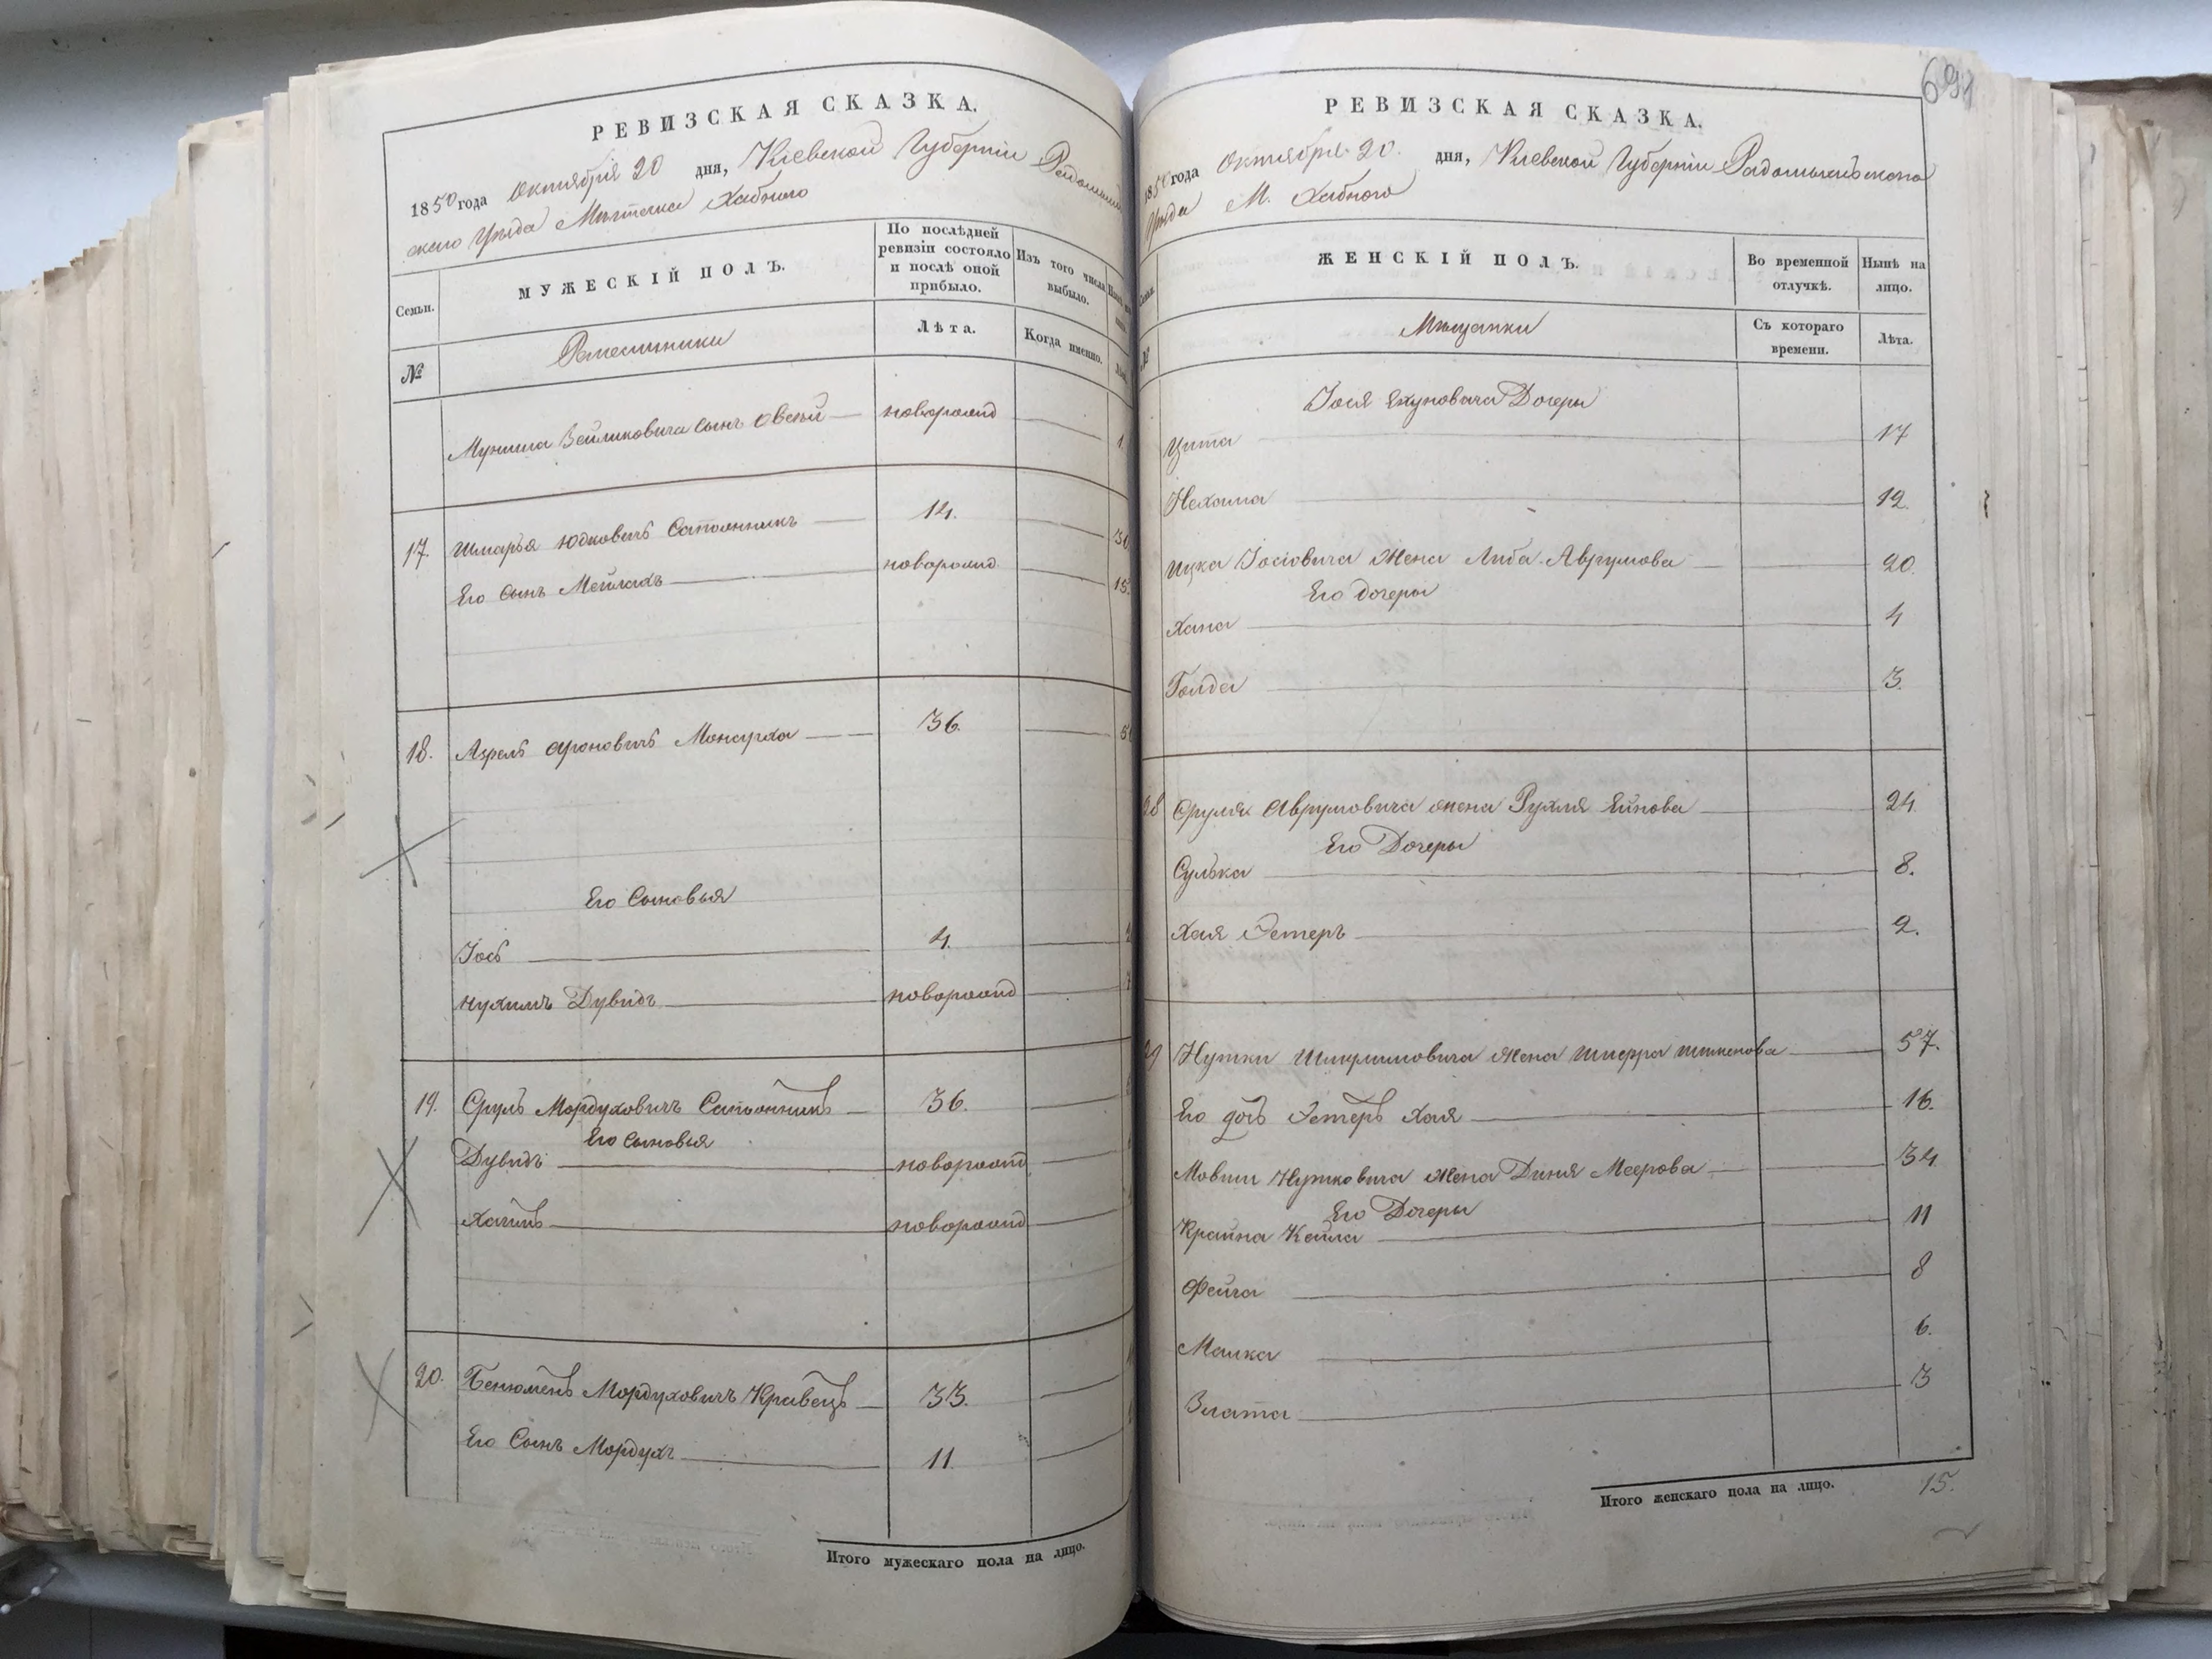 РЕВИЗСКАЯ СКАЗКА.
1850 года Октября 20 дня, Кіевской Губерніи Радомысль
скаго Уѣзда Мѣстечка Хабного
Семьи.
МУЖЕСКІЙ ПОЛЪ.
По послѣдней ревизіи состояло и послѣ оной прибыло.
Изъ того числа выбыло.
№
Ремесленики
Лѣта.
Когда именно.
Сынъ Овсѣй новорожд 1
17. Шмарья Юдковичъ Сапожникъ 14. 30
Его Сынъ Мейлахъ новорожд 15.
18. Азрель Ароновичъ Монсурха 36.
Его Сыновья
Іось 4.
Нухимъ Дувидъ новорожд
19. Сруль Мордуховичъ Сапожникъ 36.
Его сыновья
Дувидъ новорожд
Хаимъ новорожд
20. Бенюменъ Мордуховичъ Кравецъ 33.
Его Сынъ Мордухъ 11.
Итого мужескаго пола на лицо.
691
РЕВИЗСКАЯ СКАЗКА.
1850 года Октября 20. дня, Кіевской Губерніи Радомысльскаго
Уѣзда М. Хабного
ЖЕНСКІЙ ПОЛЪ.
Во временной отлучкѣ.
Нынѣ на лицо.
№
Мѣщанки
Съ котораго времени.
Лѣта.
Іося Дочери
Ципа 17
Нехама 12.
Ицка Іосіовича Жена Либа Аврумова 20.
Его дочери
Хана 4
Голда 3.
28 Срулях Аврумовича жена Рухля Ейнова 24
Его Дочеры
Сулька 8.
Хая Эстеръ 2.
29 Нутки Шмулиовича Жена 57.
Его дочь Эстеръ Хая 16.
Мовши Нутковича Жена Диня Меерова 34
Его Дочеры
Крайна Кейла 11
Фейга 8
Малка 6.
Злата 3
Итого женскаго пола на лицо. 15.